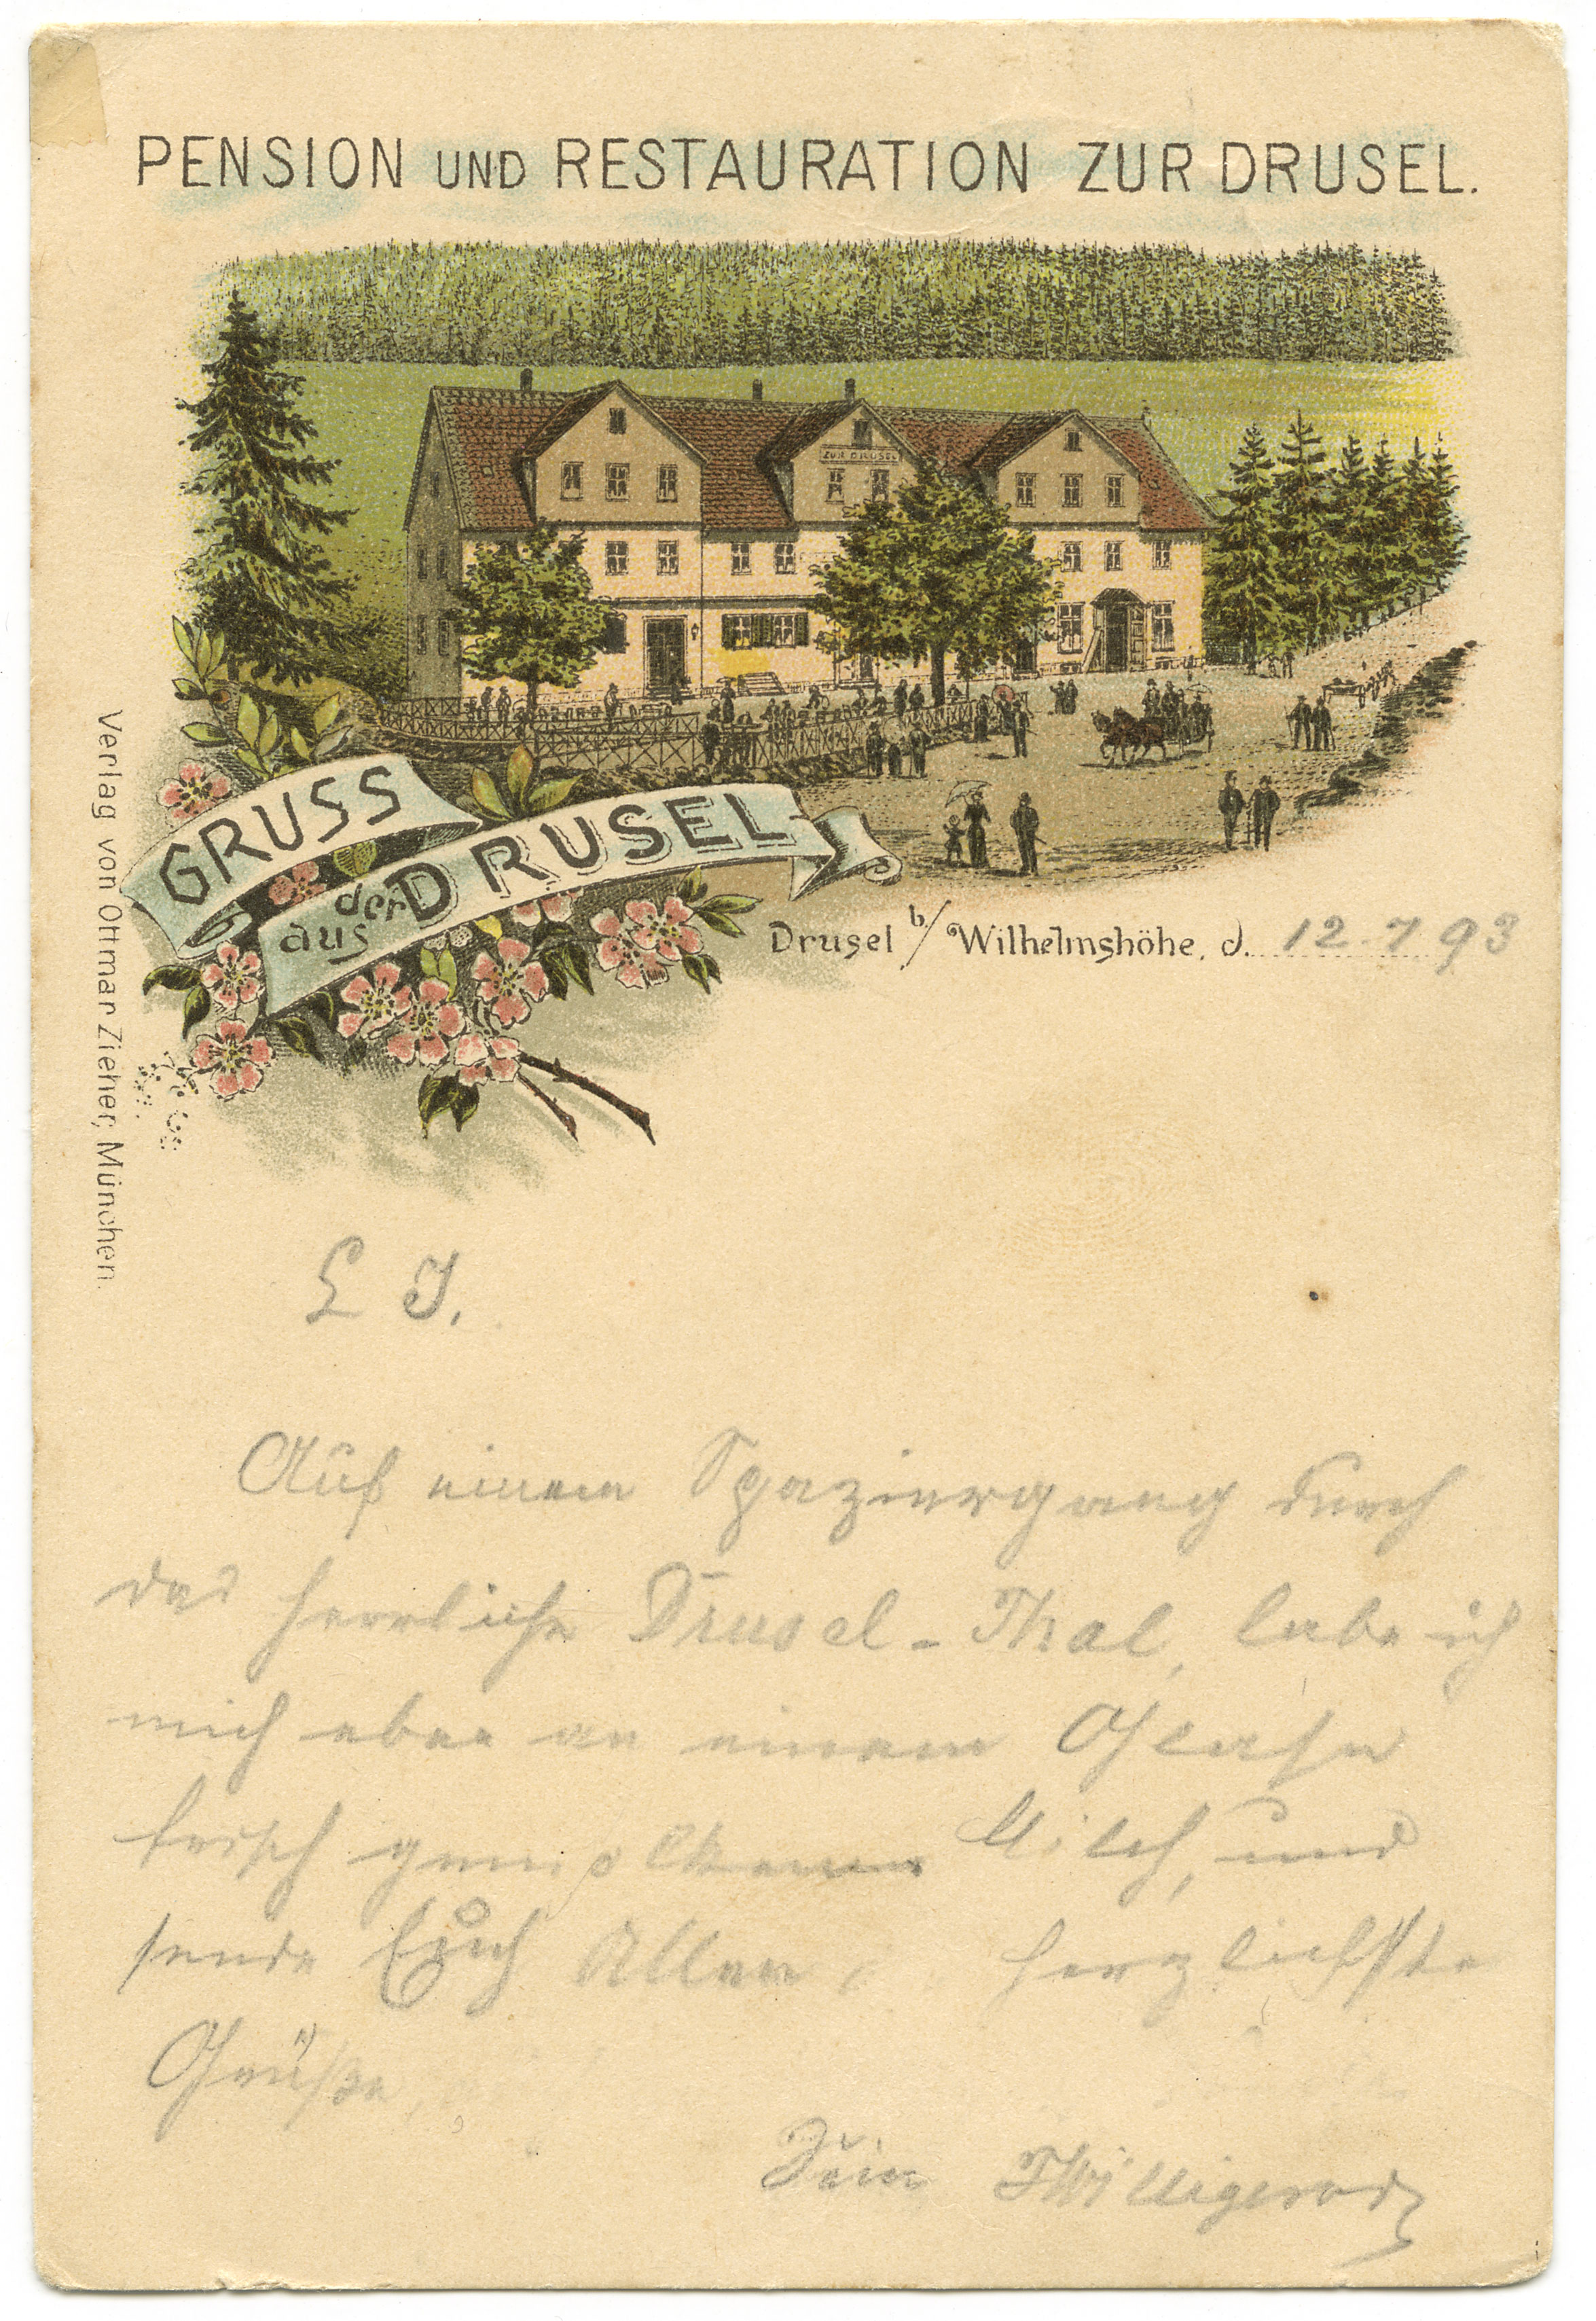 PENSION UND RESTAURATION ZUR DRUSEL.
ZUR DRUSEL
GRUSS
aus der DRUSEL
Drusel b/ Wilhelmshöhe, d. 12.7.93
Verlag von Ottmar Zieher, München.
L J.
Auf einem Spaziergang durch
das herrliche Drusel-Thal, labe ich
mich eben an einem Glase
frisch gemolkener Milch, und
sende Euch Allen herzlichste
Grüße,
Dein Willigerod